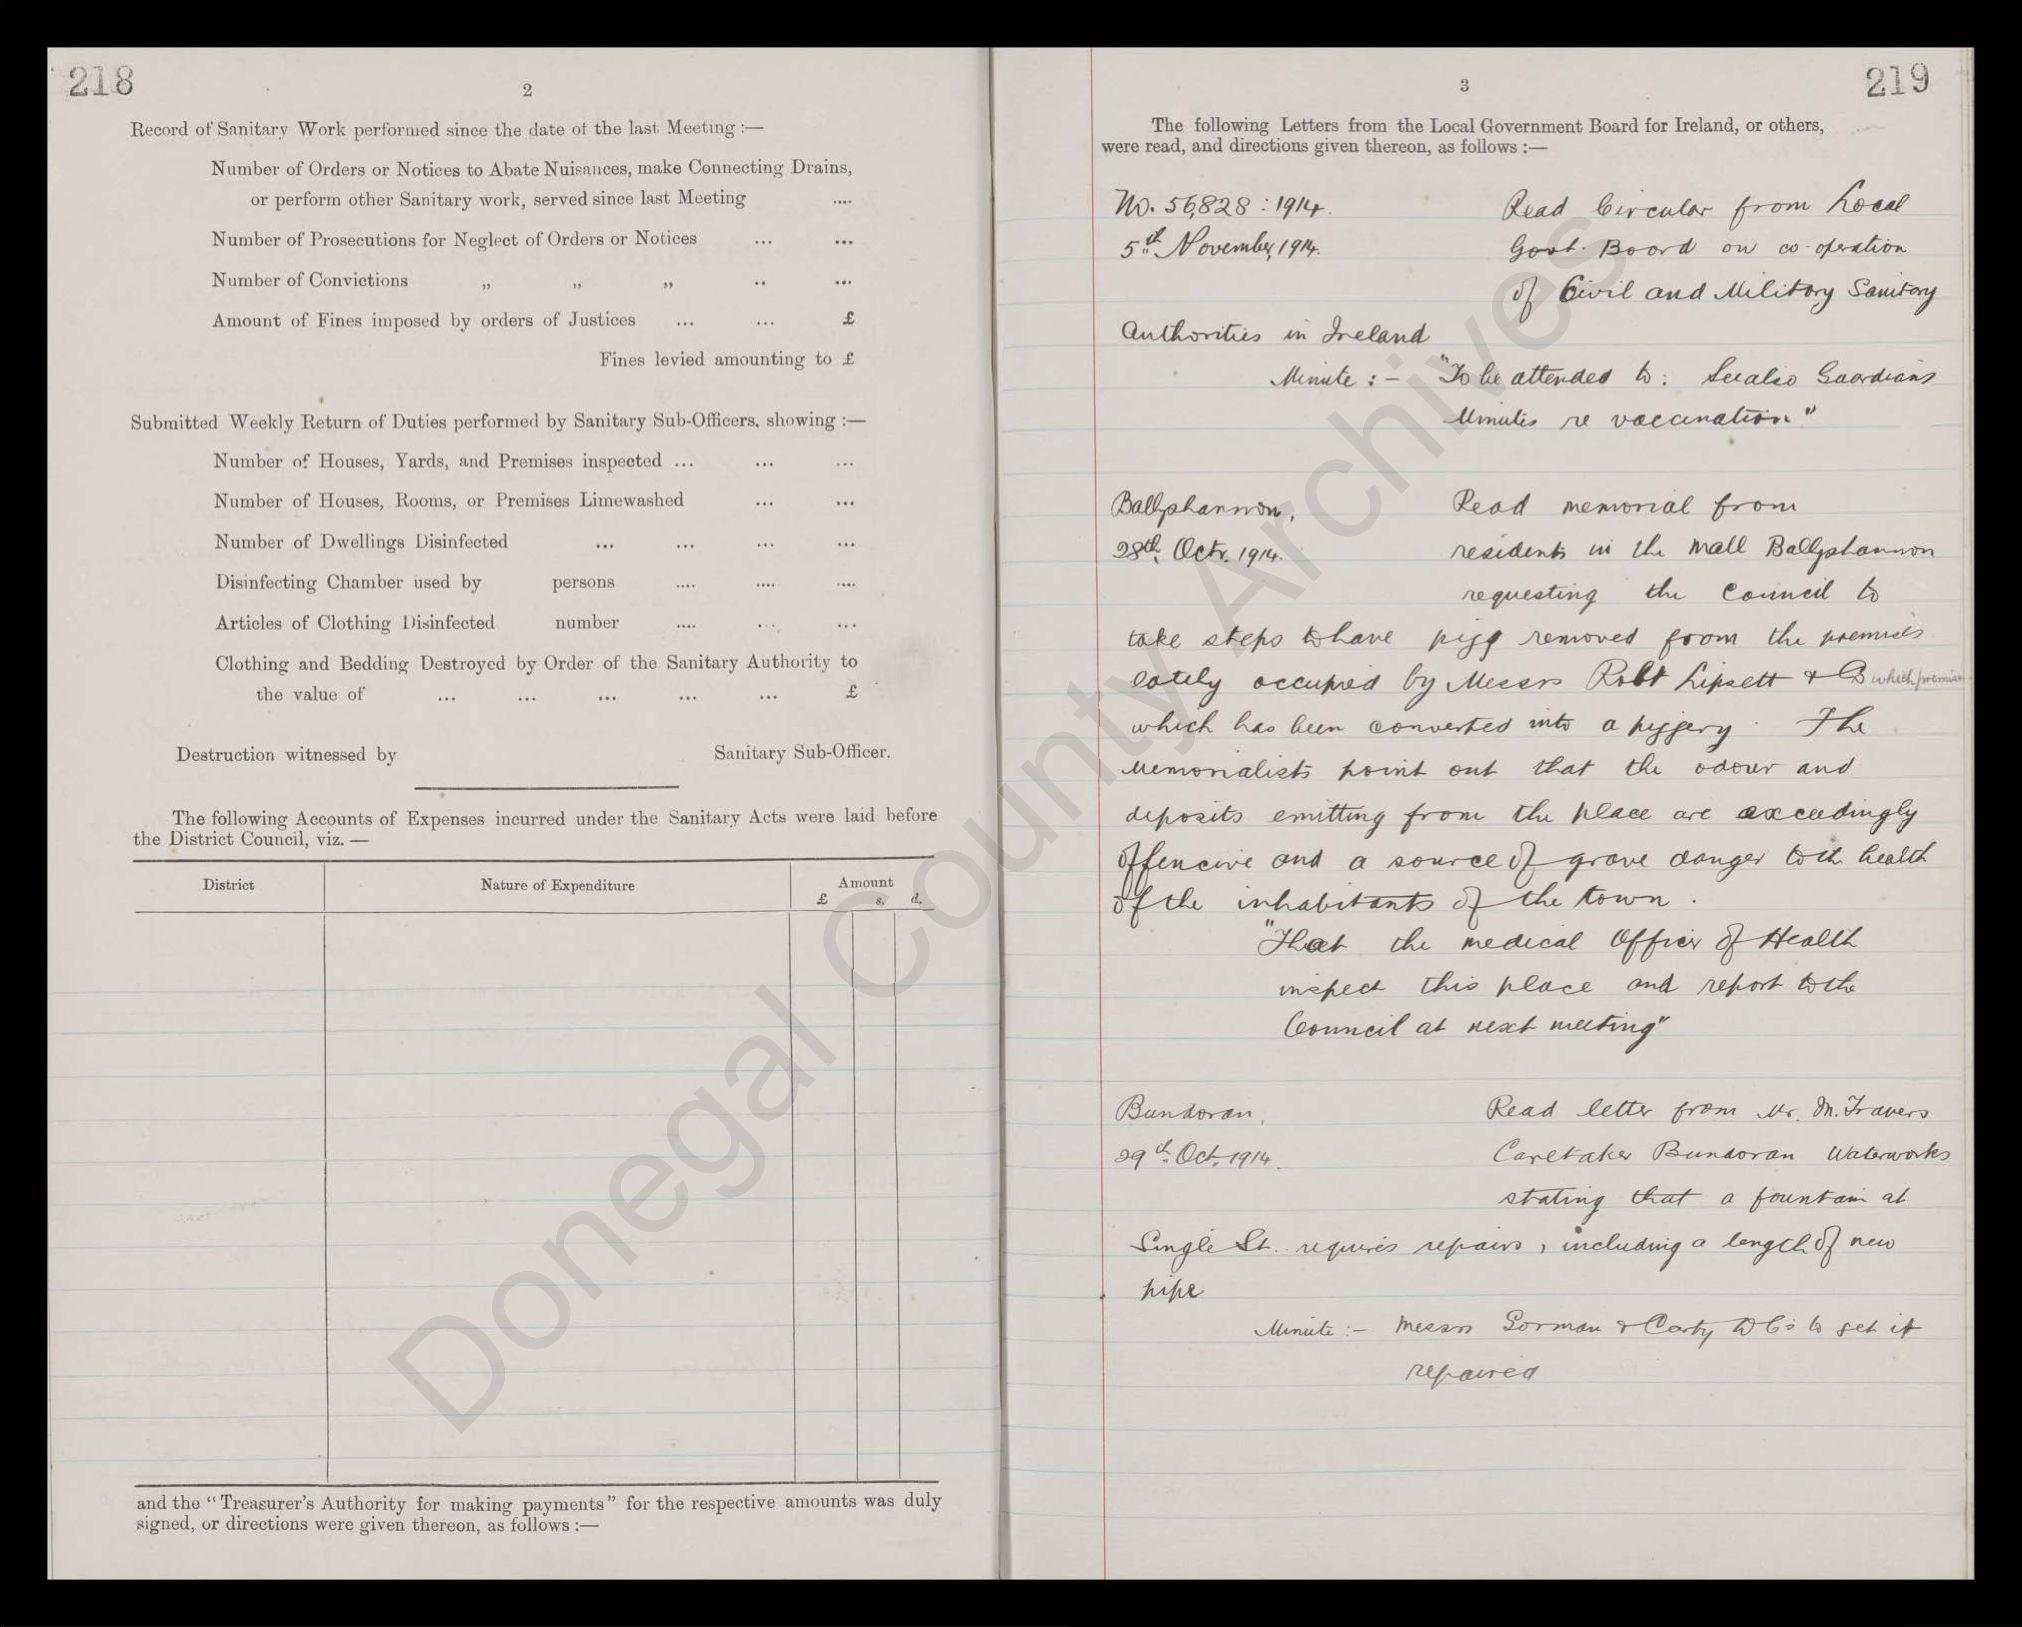 218
2
Record of Sanitary Work performed since the date of the last Meeting :—
Number of Orders or Notices to Abate Nuisances, make Connecting Drains,
or perform other Sanitary work, served since last Meeting ....
Number of Prosecutions for Neglect of Orders or Notices ... ...
Number of Convictions „ „ „ .. ...
Amount of Fines imposed by orders of Justices ... ... £
Fines levied amounting to £
Submitted Weekly Return of Duties performed by Sanitary Sub-Officers, showing :—
Number of Houses, Yards, and Premises inspected ... ... ...
Number of Houses, Rooms, or Premises Limewashed ... ...
Number of Dwellings Disinfected ... ... ... ...
Disinfecting Chamber used by persons .... .... ....
Articles of Clothing Disinfected number .... ... ...
Clothing and Bedding Destroyed by Order of the Sanitary Authority to
the value of ... ... ... ... ... £
Destruction witnessed by Sanitary Sub-Officer.
The following Accounts of Expenses incurred under the Sanitary Acts were laid before
the District Council, viz. —
District Nature of Expenditure Amount
£ s. d.
and the "Treasurer's Authority for making payments" for the respective amounts was duly
signed, or directions were given thereon, as follows :—
219
3
The following Letters from the Local Government Board for Ireland, or others,
were read, and directions given thereon, as follows :—
No. 56,828 : 1914. Read Circular from Local
5th November, 1914. Govt. Board on co-operation
of Civil and Military Sanitary
Authorities in Ireland
Minute :- "To be attended to: See also Guardians
Minutes re vaccination"
Ballyshannon, Read memorial from
28th Octr. 1914. residents in the Mall Ballyshannon
requesting the Council to
take steps to have pigs removed from the premises
lately occupied by Messrs Robt Lipsett & Co which premises
which has been converted into a piggery. The
Memorialists point out that the odour and
deposits emitting from the place are exceedingly
offencive and a source of grave danger to the health
of the inhabitants of the town.
"That the medical Officer of Health
inspect this place and report to the
Council at next meeting"
Bundoran, Read letter from Mr. M. Travers
29th Oct. 1914. Caretaker Bundoran Waterworks
stating that a fountain at
Single St. requires repairs, including a length of new
pipe
Minute :- Messrs Gorman & Carty to get it
repaired
Donegal County Archives